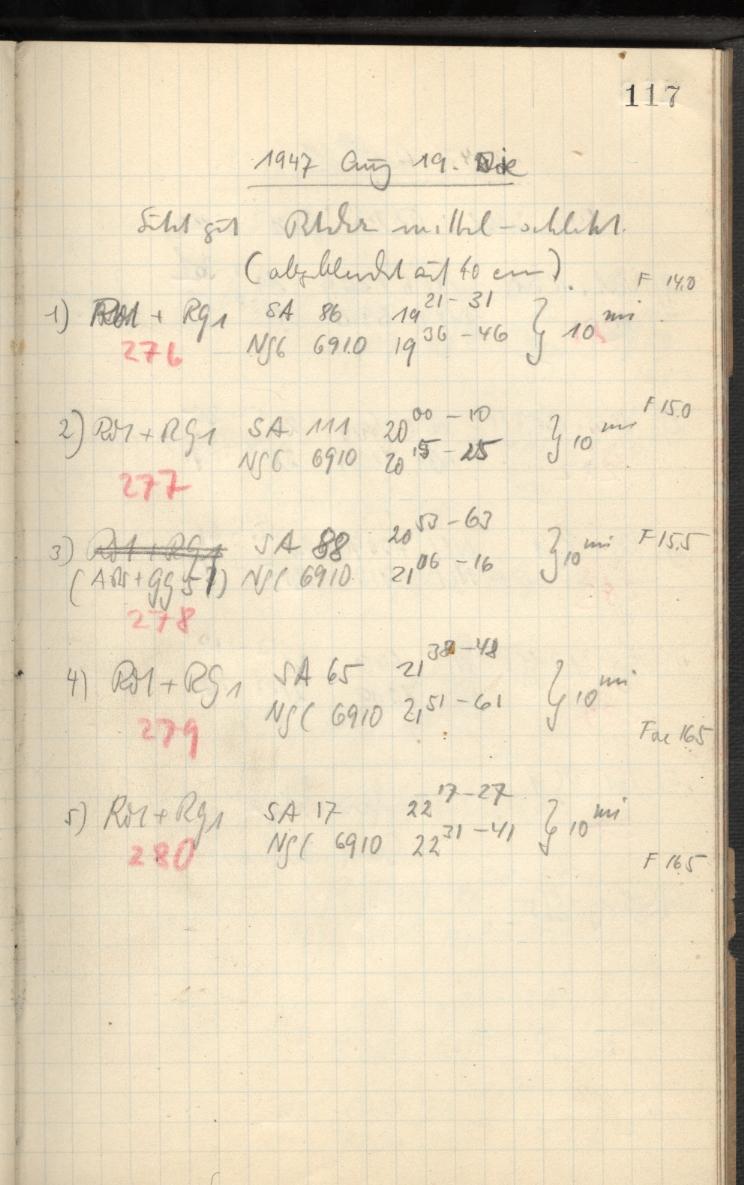 117
1947 Aug 19. Die
Sicht gut mittel-schlecht.
(abgeblendet auf 40 cm).
F 14.0
1) Rot + RG1 SA 86 19 21-31 } 10 mi
276 NGC 6910 19 36-46
F 15.0
2) Rot + RG1 SA 111 20 00-10 } 10 mi
277 NGC 6910 20 15-25
3) Rot + RG1 SA 88 20 53-63 } 10 mi F 15,5
(+ GG 5) NGC 6910 21 06-16
278
4) Rot + RG1 SA 65 21 38-48 } 10 mi
279 NGC 6910 21 51-61
165
5) Rot + RG1 SA 17 22 17-27 } 10 mi
280 NGC 6910 22 31-41
F 165